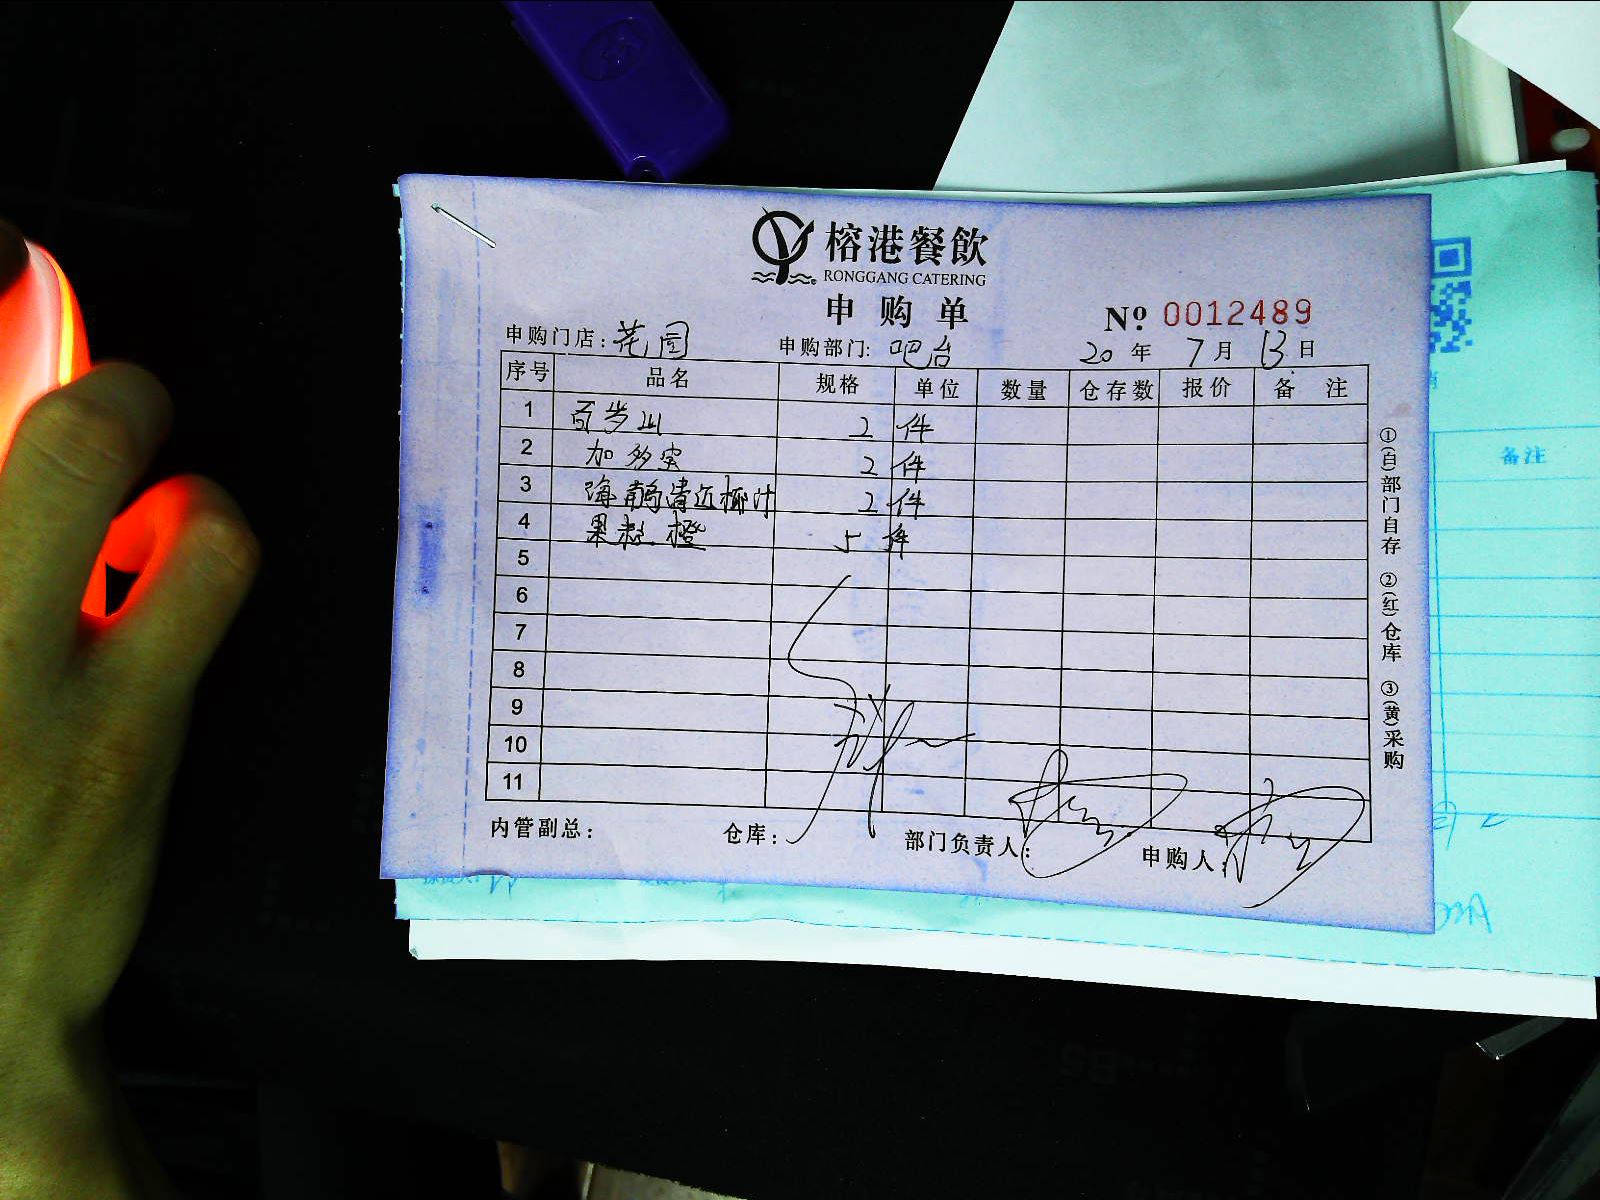 榕港餐飲
RONGGANG CATERING
申购单
№ 0012489
申购门店: 花园 申购部门: 吧台 20 年 7 月 13 日
序号 品名 规格 单位 数量 仓存数 报价 备注
1 百岁山 2 件
2 加多宝 2 件
3 海南 椰汁 2 件
4 果粒橙 5 件
5
6
7
8
9
10
11
内管副总: 仓库: 部门负责人: 申购人:
①(白)部门自存 ②(红)仓库 ③(黄)采购
备注